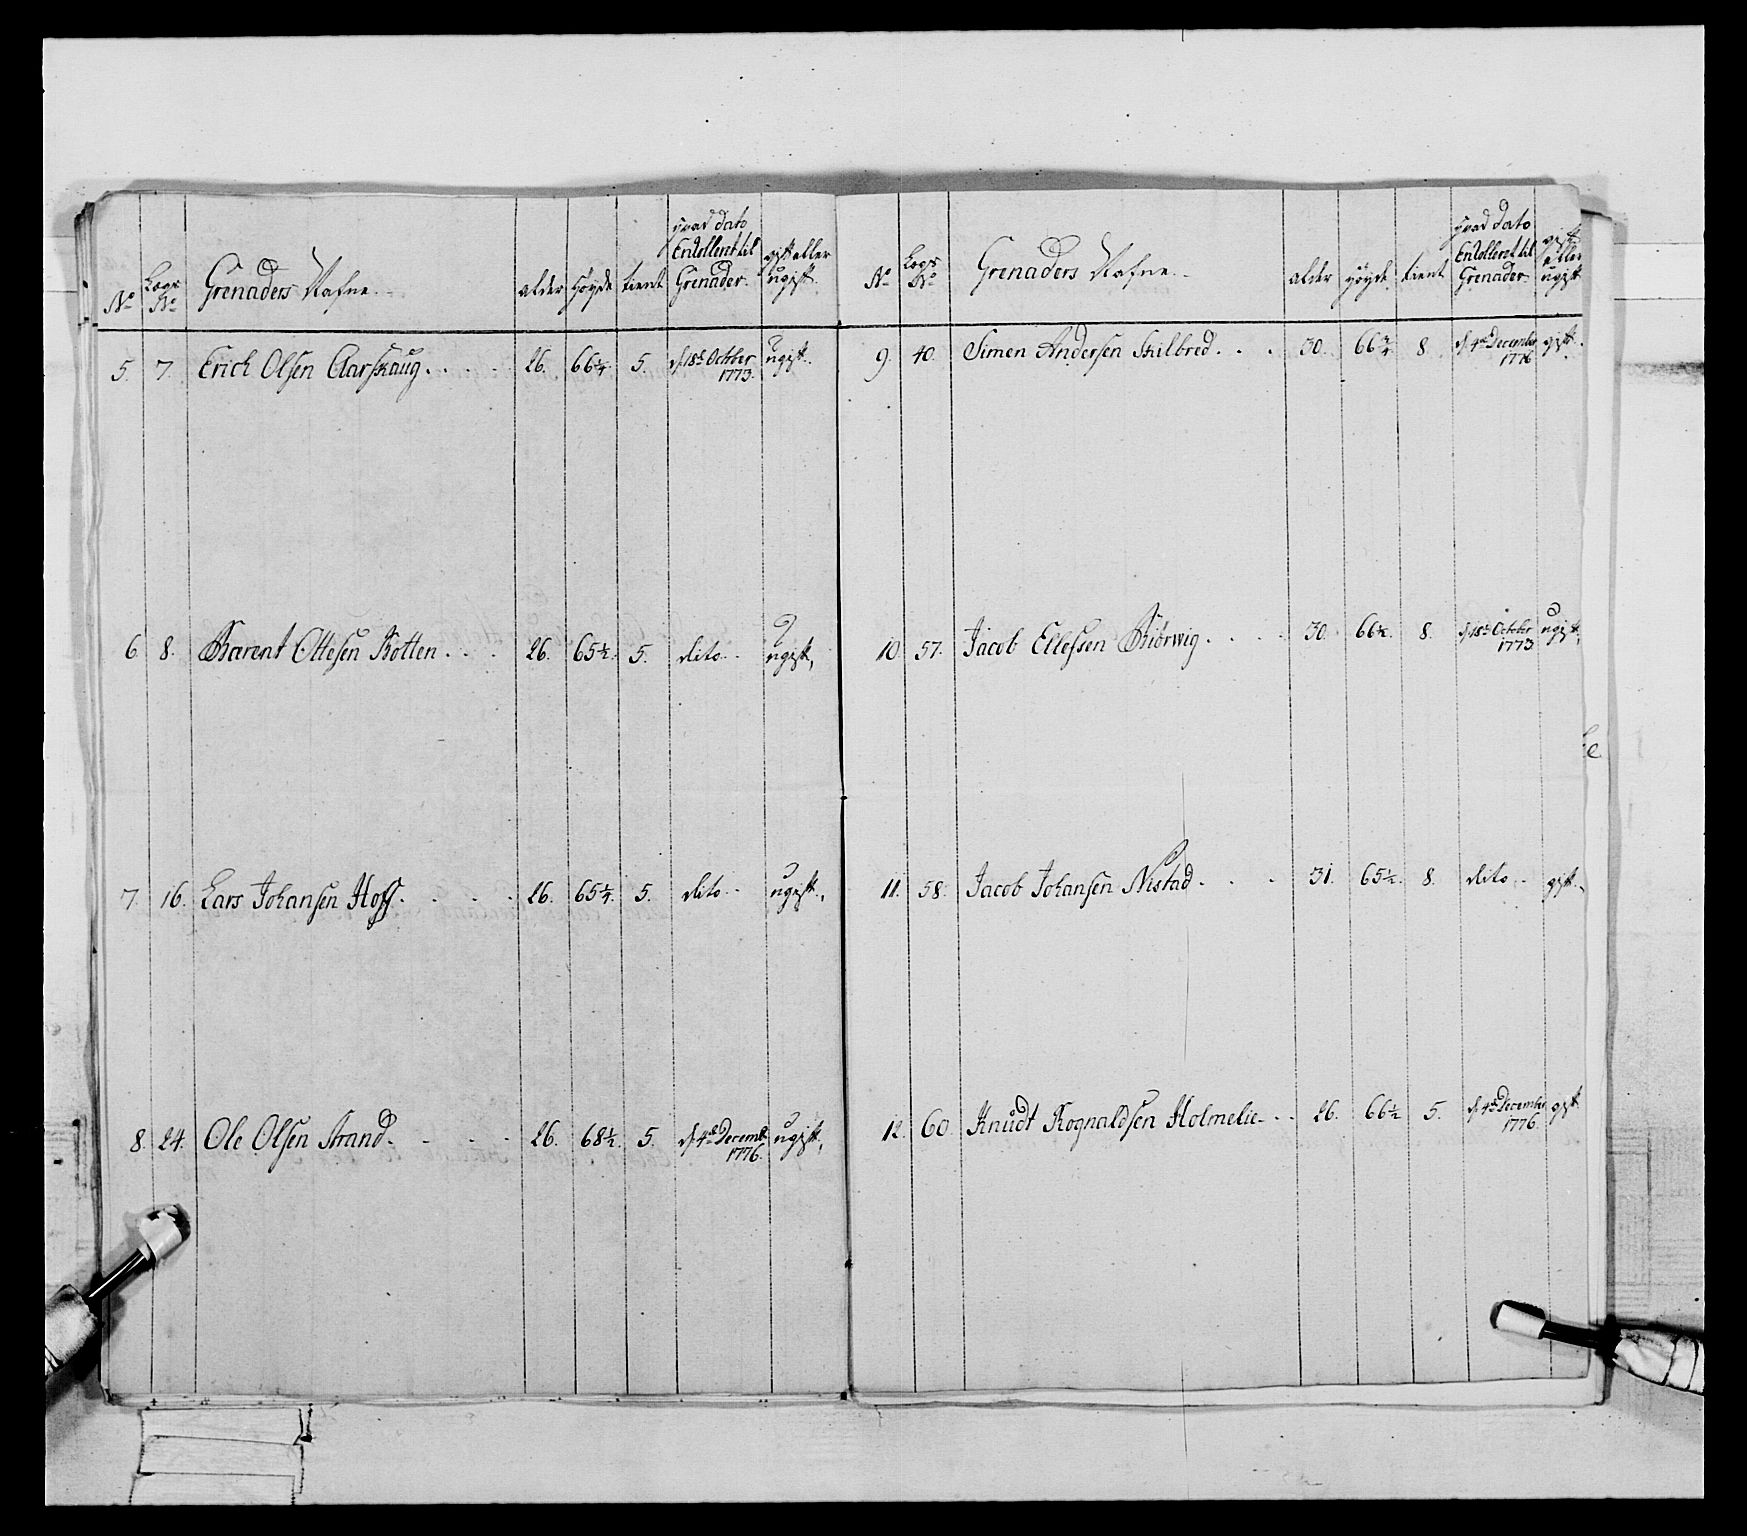 No Legs No Grenaders Nafne. alder Höyde tient hvad Dato Enrolleret til Grenader. gift eller ugift.
5. 7. Erich Olsen Aarskaug. 26. 66¼. 5. d. 18de October 1773. ugift.
6. 8. Barent Ottesen Kotten. 26. 65½. 5. dito. ugift,
7. 16. Lars Johansen Hoff. 26. 65¼. 5. dito. ugift.
8. 24. Ole Olsen Strand. 26. 68½. 5. d. 4de Decemb. 1776. ugift,
No Legs No Grenaders Nafne. alder höyde tient hvad Dato Enrolleret til Grenader. gift eller ugift
9. 40. Simen Andersen Hilbred. 30. 66¾ 8. d. 4de December 1776 gift.
10. 57. Jacob Ellefsen Biörwig. 30. 66½. 8. d. 18de October 1773 ugift,
11. 58. Jacob Johansen Nistad. 31. 65½. 8. dito. gift.
12. 60. Knudt Rognaldsen Holmelie 26. 66½ 5. d. 4de December 1776. gift